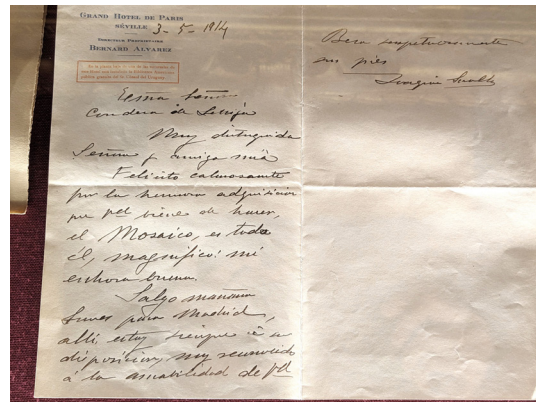 GRAND HOTEL DE PARIS
SÉVILLE
3-5-1914
DIRECTEUR PROPRIETAIRE
BERNARD ALVAREZ
Exma Señora
Condesa de Lebrija
Muy distinguida
Señora y amiga mia
Felicito calurosamente
por la hermosa adquisicion
que Vd viene de hacer,
el Mosaico, es todo
él, magnifico: mi
enhorabuena.
Salgo mañana
Lunes para Madrid,
alli estoy siempre á su
disposicion, muy reconocido
á la amabilidad de Vd
Besa respetuosamente
sus pies
Joaquin Sorolla